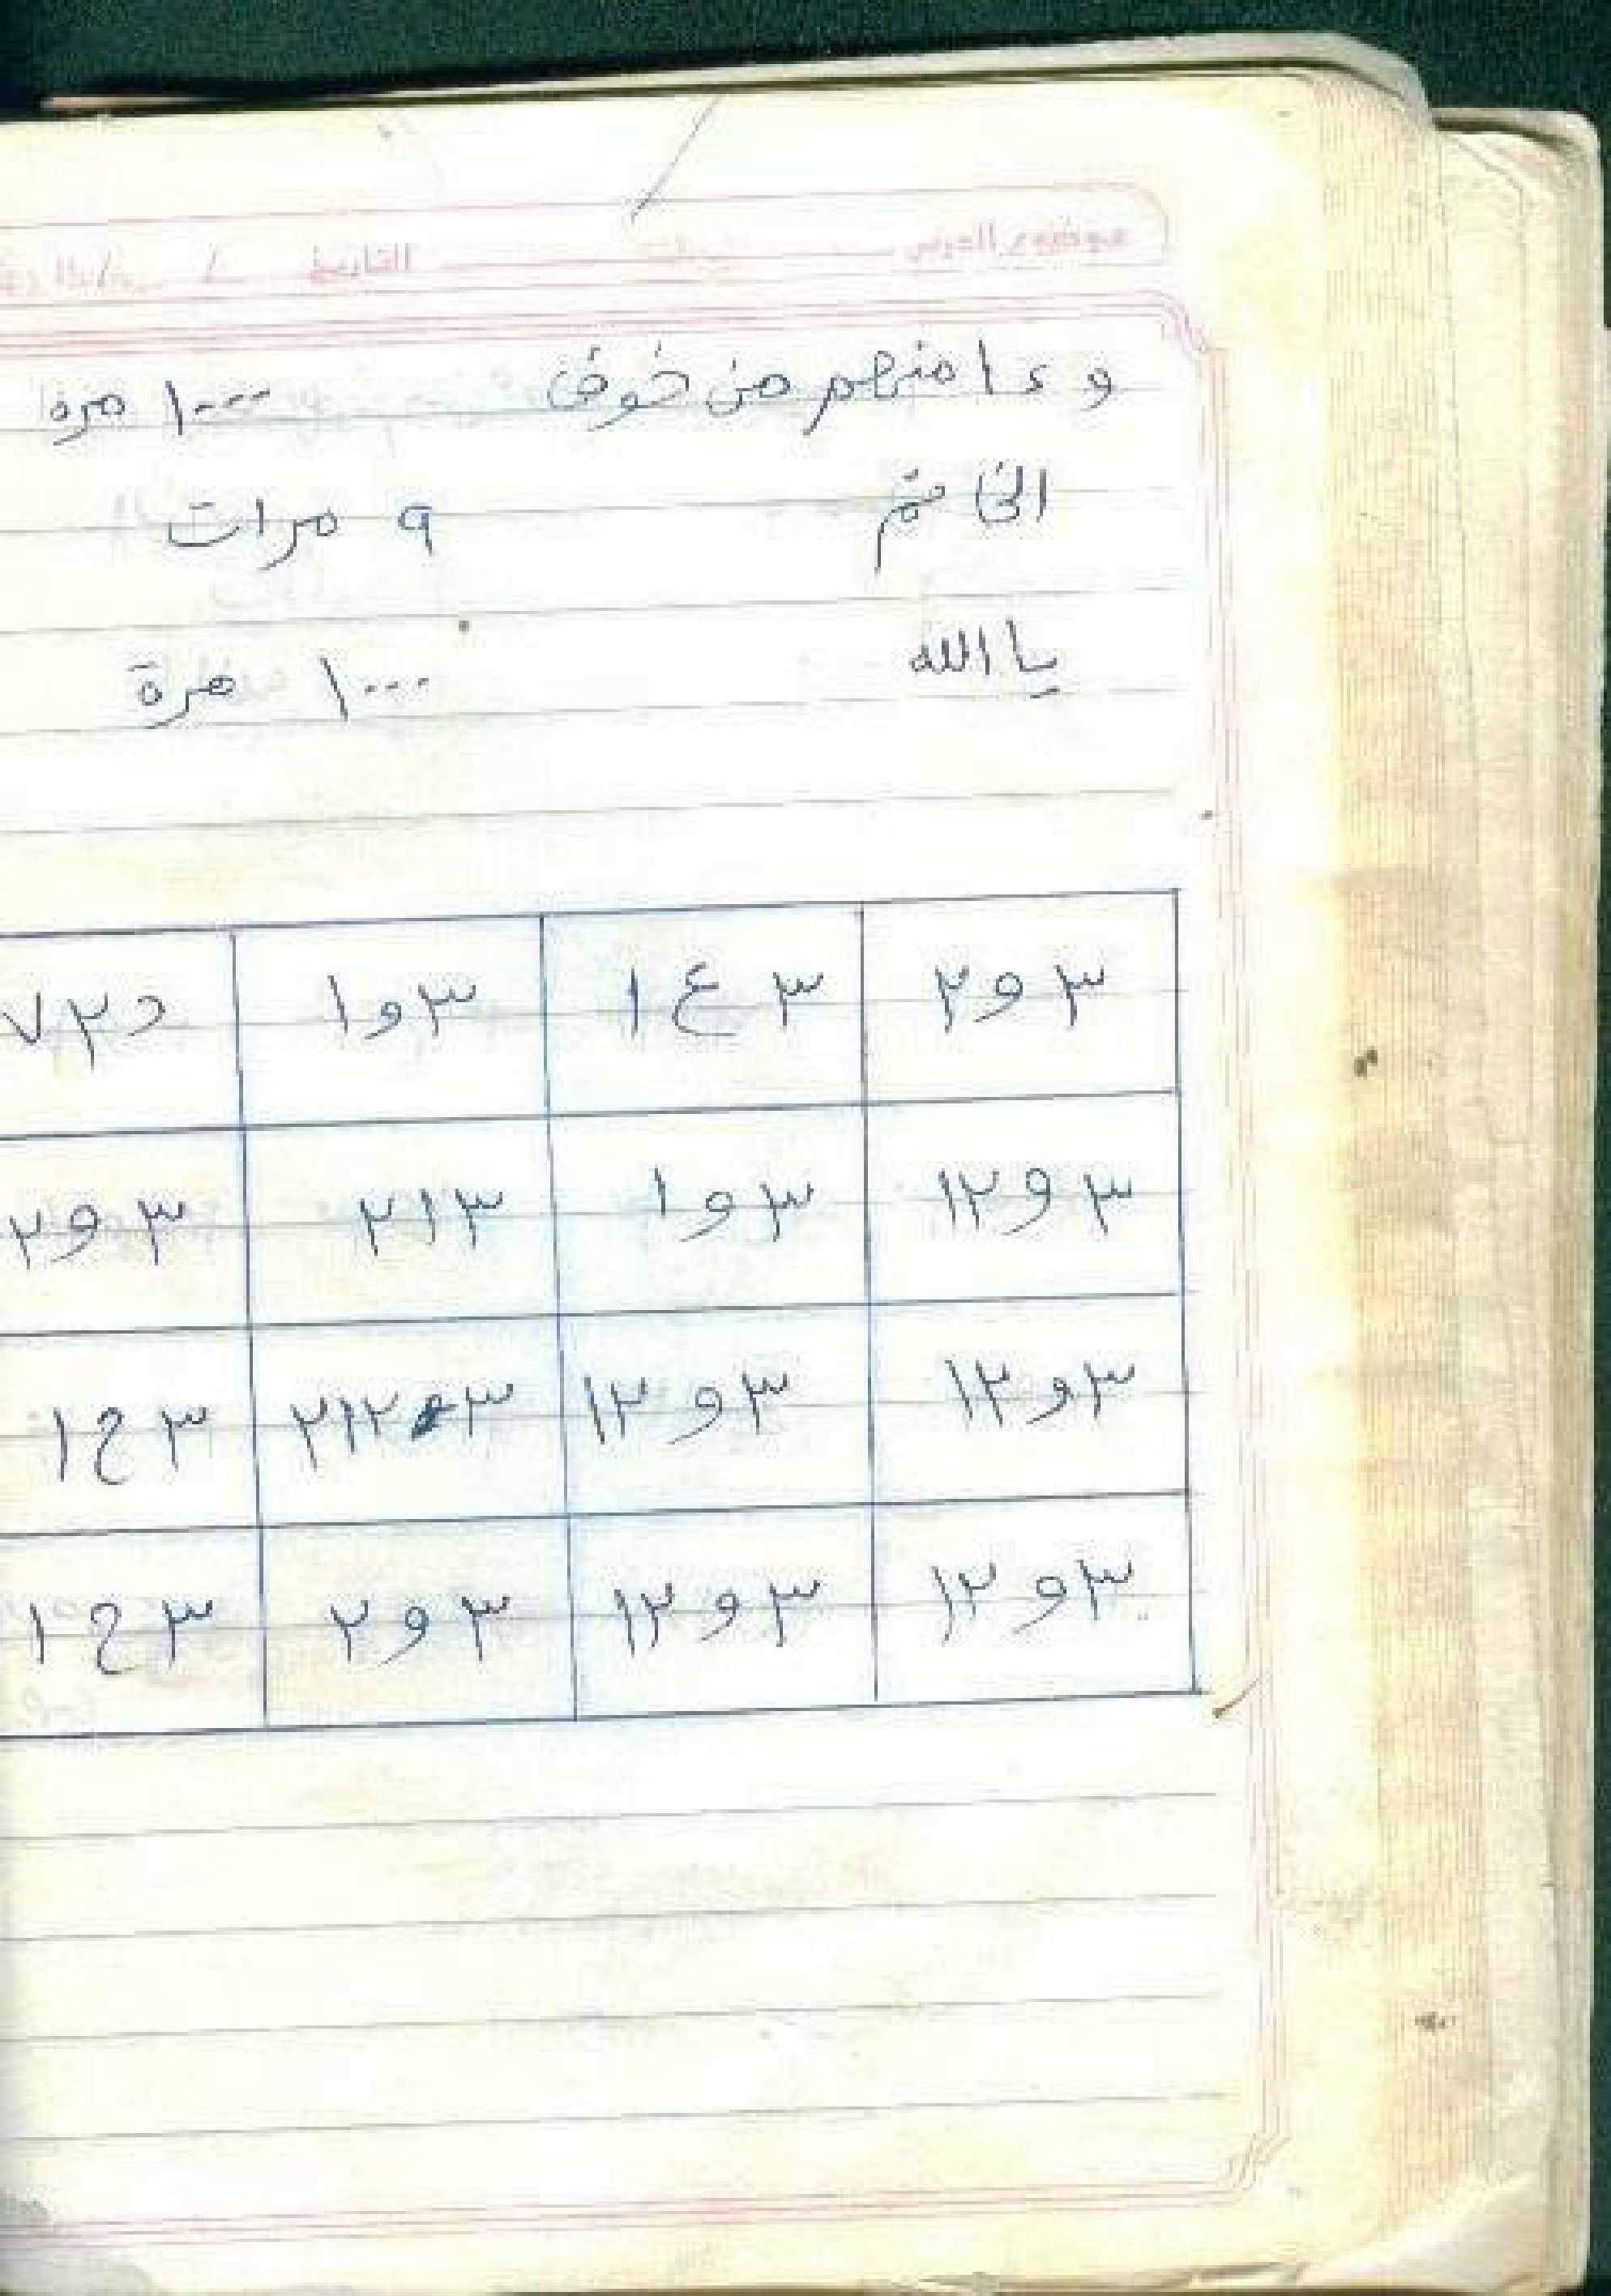 موضوع الدرس التاريخ / /
و ءامنهم من خوف ١٠٠٠ مره
٩ مرات
يا الله ١٠٠٠ مرة
٣و٢ ٣ع١ ٣و١ د٢٧
٣و١٢ ٣و١ ٣١٢ ٣و٢
٣و١٢ ٣و١٢ ٢١٢ ٣ع١
٣و١٢ ٣و١٢ ٣و٢ ٣ع١